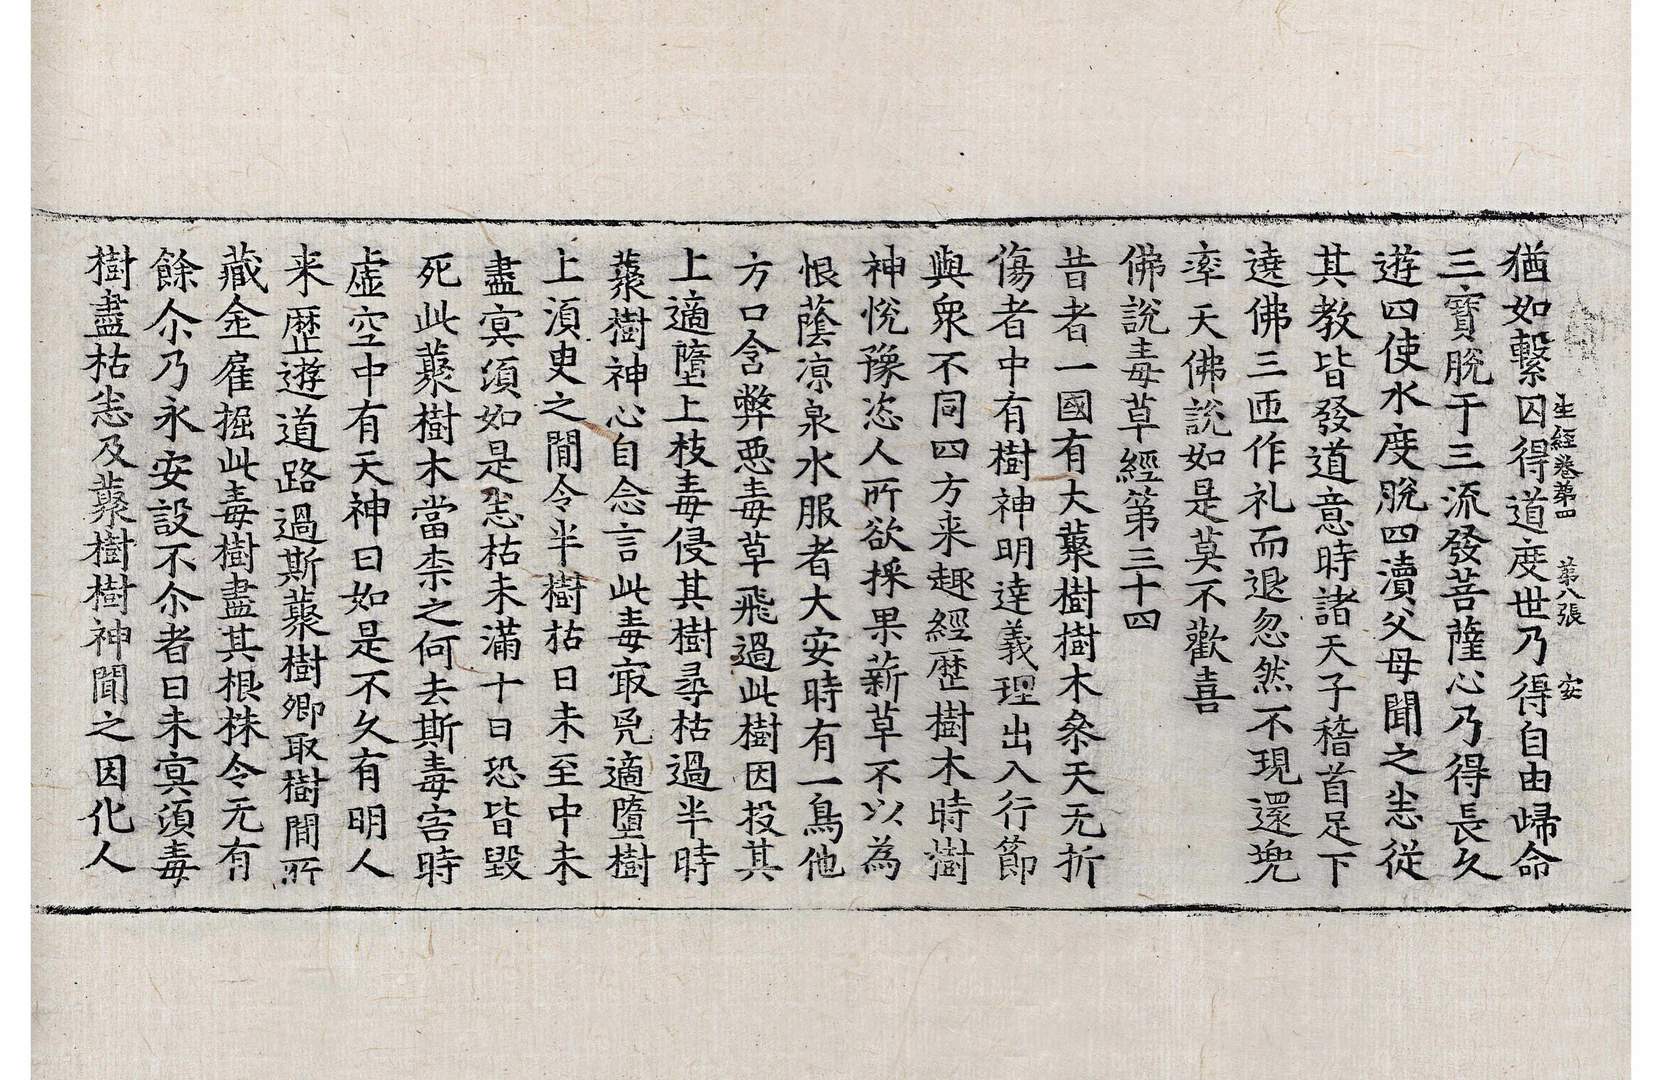 生經卷第四　第八張　安
猶如繫囚得道度世乃得自由歸命
三寶脫于三流發菩薩心乃得長久
遊四使水度脫四瀆父母聞之悉從
其教皆發道意時諸天子稽首足下
遶佛三匝作礼而退忽然不現還兜
率天佛說如是莫不歡喜
佛說毒草經第三十四
昔者一國有大藂樹樹木叅天无折
傷者中有樹神明達義理出入行節
與衆不同四方来趣經歷樹木時樹
神悅豫恣人所欲採果薪草不以為
恨蔭凉泉水服者大安時有一鳥他
方口含弊惡毒草飛過此樹因投其
上適墮上枝毒侵其樹尋枯過半時
藂樹神心自念言此毒㝡兇適墮樹
上湏臾之間令半樹枯日未至中未
盡㝠湏如是悉枯未滿十日恐皆毀
死此藂樹木當柰之何去斯毒害時
虛空中有天神曰如是不久有明人
来歷遊道路過斯藂樹卿取樹間所
藏金雇掘此毒樹盡其根株令无有
餘尒乃永安設不尒者日未㝠湏毒
樹盡枯悉及藂樹樹神聞之因化人